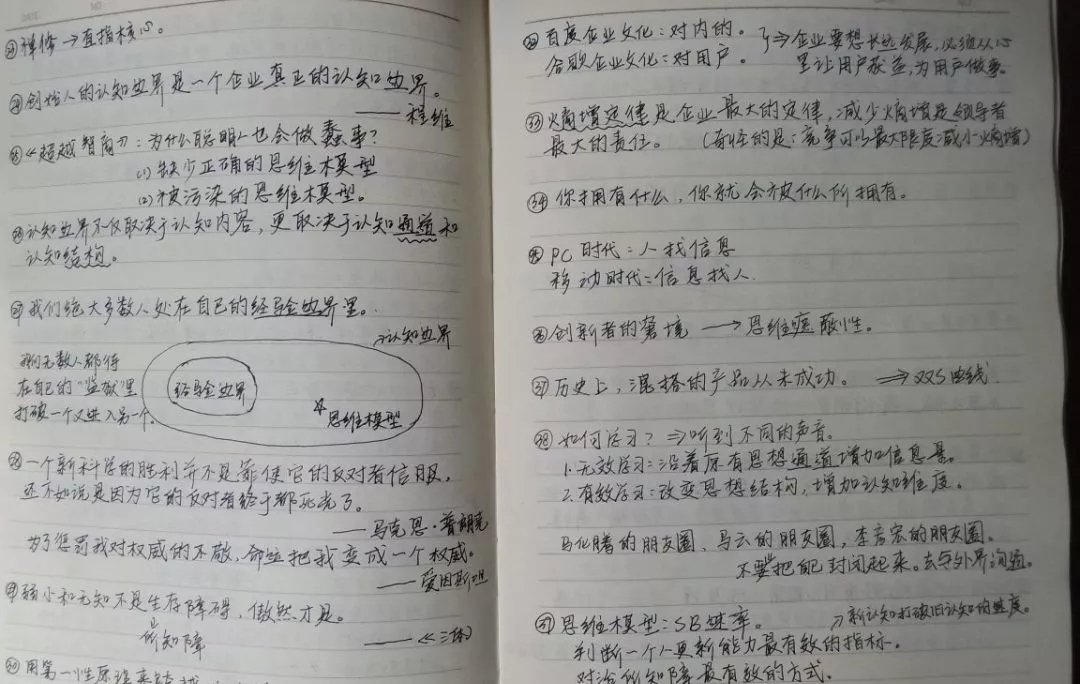 禅修→直指核心。
创始人的认知边界是一个企业真正的认知边界。
——程维
《超越智商》:为什么聪明人也会做蠢事?
(1)缺少正确的思维模型
(2)被污染的思维模型。
认知边界不仅取决于认知内容,更取决于认知通道和
认知结构。
㉗我们绝大多数人处在自己的经验边界里。
→认知边界
我们无数人都待
在自己的“监狱”里
打破一个又进入另一个。
经验边界
思维模型
㉘一个新科学的胜利并不是靠使它的反对者信服,
还不如说是因为它的反对者终于都死光了。
——马克思·普朗克
为了惩罚我对权威的不敬,命运把我变成一个权威。
——爱因斯坦
㉙弱小和无知不是生存障碍,傲然才是。
所知障
——《三体》
㉚用第一性原理来
百度企业文化:对内的。
谷歌企业文化:对用户。
⇒企业要想长远发展,必须从心
里让用户获益,为用户做事。
㉝熵增定律是企业最大的定律,减少熵增是领导者
最大的责任。(奇怪的是:竞争可以最大限度减小熵增)
㉞你拥有什么,你就会被什么所拥有。
㉟PC时代:人找信息
移动时代:信息找人.
㊱创新者的窘境→思维遮蔽性。
㊲历史上,混搭的产品从未成功。⇒双S曲线
㊳如何学习?⇒听到不同的声音。
1.无效学习:沿着原有思想通道增加信息量。
2.有效学习:改变思想结构,增加认知维度。
马化腾的朋友圈、马云的朋友圈,李彦宏的朋友圈。
不要把自己封闭起来。去与外界沟通。
㊴思维模型:SB速率。
→新认知打破旧认知的速度。
判断一个人更新能力最有效的指标。
对治所知障最有效的方式。